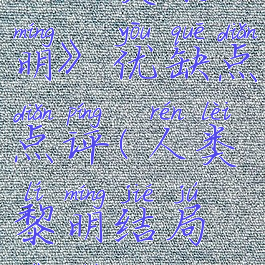 míng yōu quē diǎn
明》优缺点
diǎn píng rén lèi
点评(人类
lí míng jié jú
黎明结局